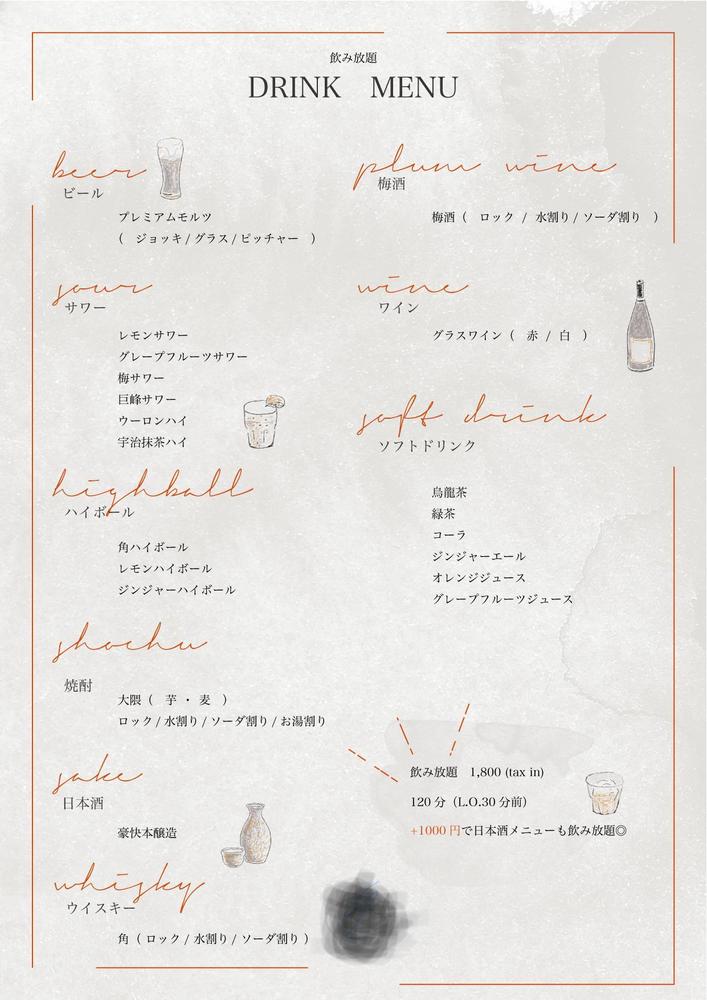 飲み放題
DRINK MENU
beer
ビール
プレミアムモルツ
( ジョッキ / グラス / ピッチャー )
sour
サワー
レモンサワー
グレープフルーツサワー
梅サワー
巨峰サワー
ウーロンハイ
宇治抹茶ハイ
highball
ハイボール
角ハイボール
レモンハイボール
ジンジャーハイボール
shochu
焼酎
大隈 ( 芋 ・ 麦 )
ロック / 水割り / ソーダ割り / お湯割り
sake
日本酒
豪快本醸造
whisky
ウイスキー
角 ( ロック / 水割り / ソーダ割り )
plum wine
梅酒
梅酒 ( ロック / 水割り / ソーダ割り )
wine
ワイン
グラスワイン ( 赤 / 白 )
soft drink
ソフトドリンク
烏龍茶
緑茶
コーラ
ジンジャーエール
オレンジジュース
グレープフルーツジュース
飲み放題 1,800 (tax in)
120 分（L.O.30 分前）
+1000 円で日本酒メニューも飲み放題◎